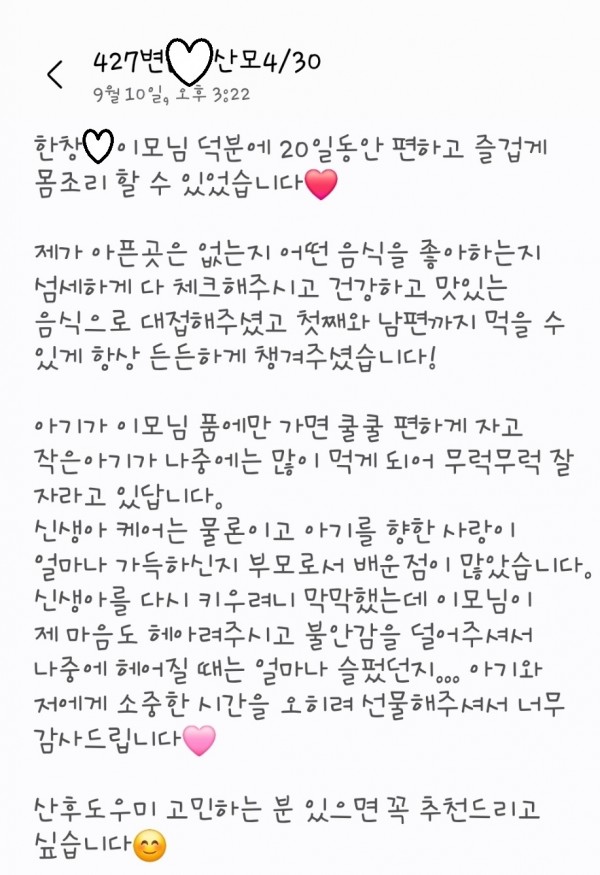 427변♡산모4/30
9월 10일, 오후 3:22
한창♡이모님 덕분에 20일동안 편하고 즐겁게
몸조리 할 수 있었습니다❤️
제가 아픈곳은 없는지 어떤 음식을 좋아하는지
섬세하게 다 체크해주시고 건강하고 맛있는
음식으로 대접해주셨고 첫째와 남편까지 먹을 수
있게 항상 든든하게 챙겨주셨습니다!
아기가 이모님 품에만 가면 쿨쿨 편하게 자고
작은아기가 나중에는 많이 먹게 되어 무럭무럭 잘
자라고 있답니다.
신생아 케어는 물론이고 아기를 향한 사랑이
얼마나 가득하신지 부모로서 배운점이 많았습니다.
신생아를 다시 키우려니 막막했는데 이모님이
제 마음도 헤아려주시고 불안감을 덜어주셔서
나중에 헤어질 때는 얼마나 슬펐던지... 아기와
저에게 소중한 시간을 오히려 선물해주셔서 너무
감사드립니다🩷
산후도우미 고민하는 분 있으면 꼭 추천드리고
싶습니다😊